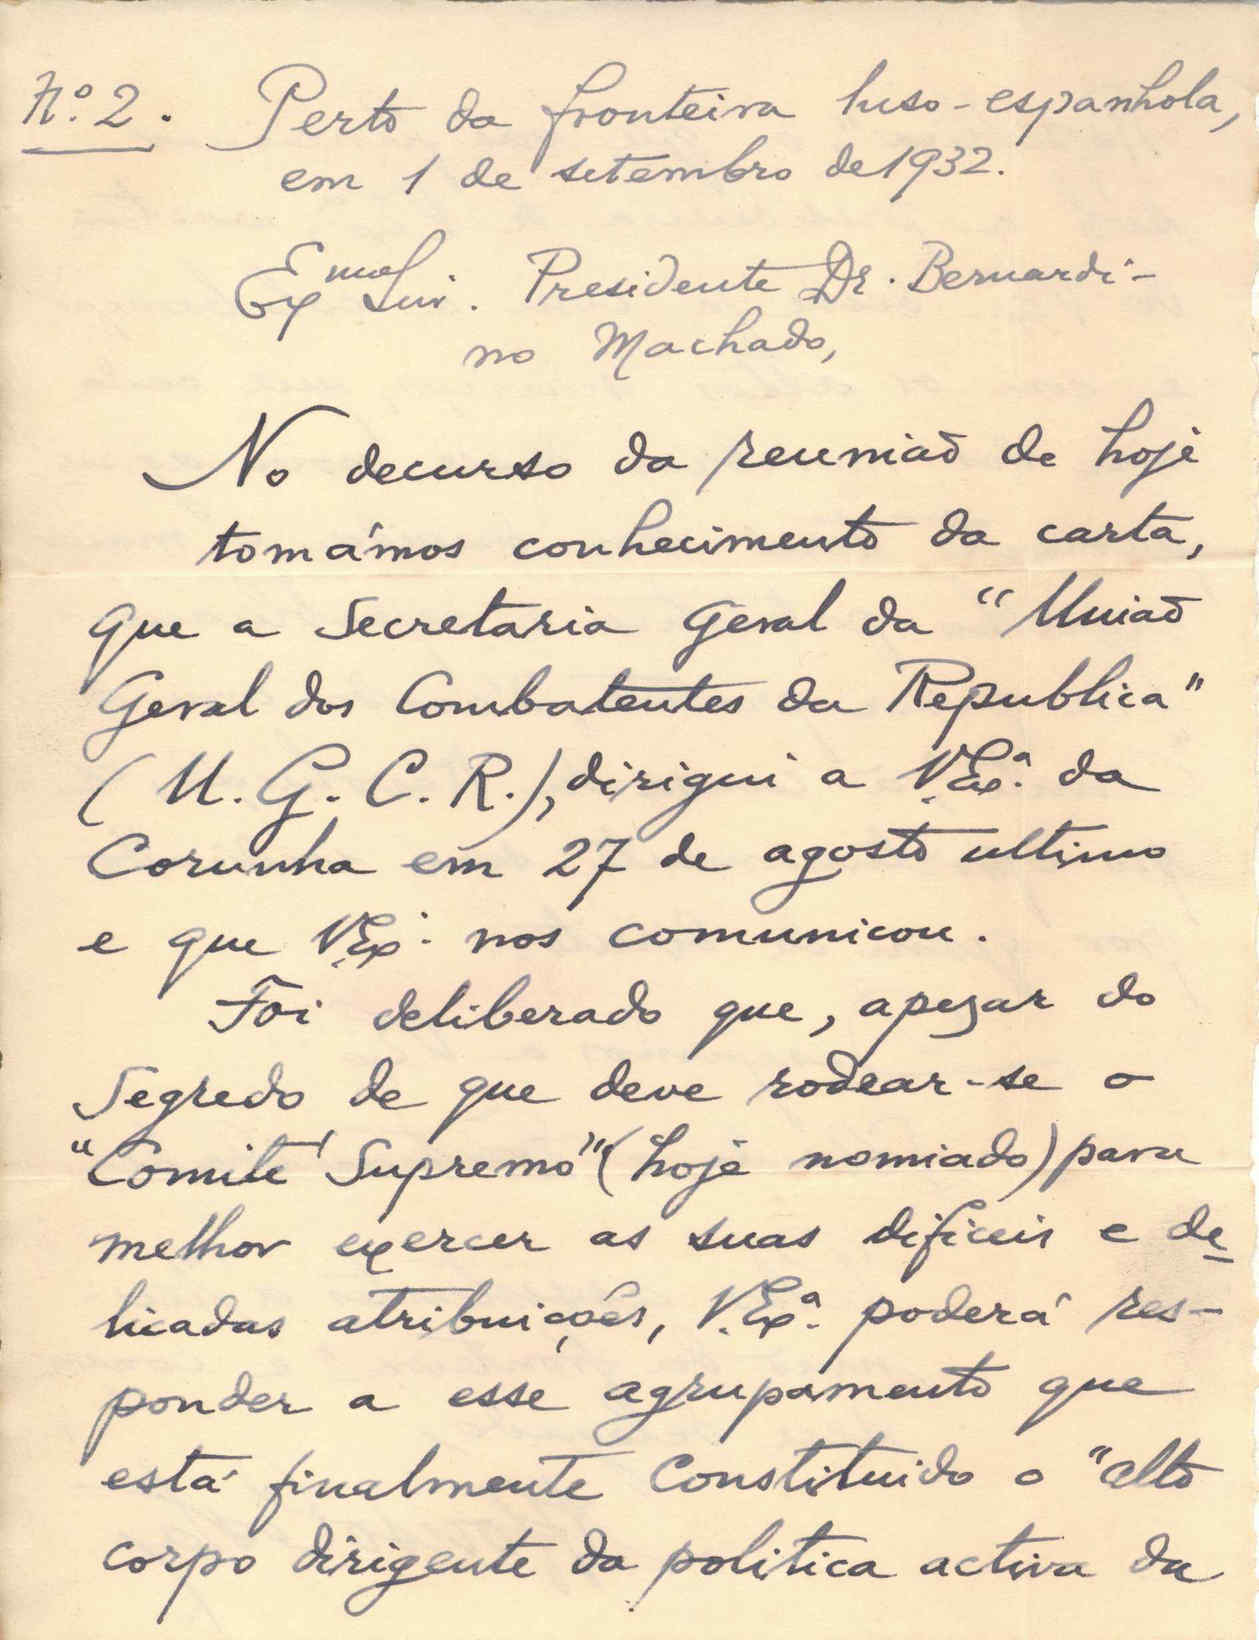 Nº. 2. Perto da fronteira luso-espanhola,
em 1 de setembro de 1932.
Exmo Snr. Presidente Dr. Bernardi-
no Machado,
No decurso da reunião de hoje
tomámos conhecimento da carta,
que a Secretaria Geral da "União
Geral dos Combatentes da Republica"
(U. G. C. R.), dirigiu a V. Exª. da
Corunha em 27 de agosto ultimo
e que V. Exª. nos comunicou.
Foi deliberado que, apezar do
segredo de que deve rodear-se o
"Comité Supremo" (hoje nomiado) para
melhor exercer as suas dificeis e de-
licadas atribuições, V. Exª. poderá res-
ponder a esse agrupamento que
está finalmente constituido o "alto
corpo dirigente da politica activa da